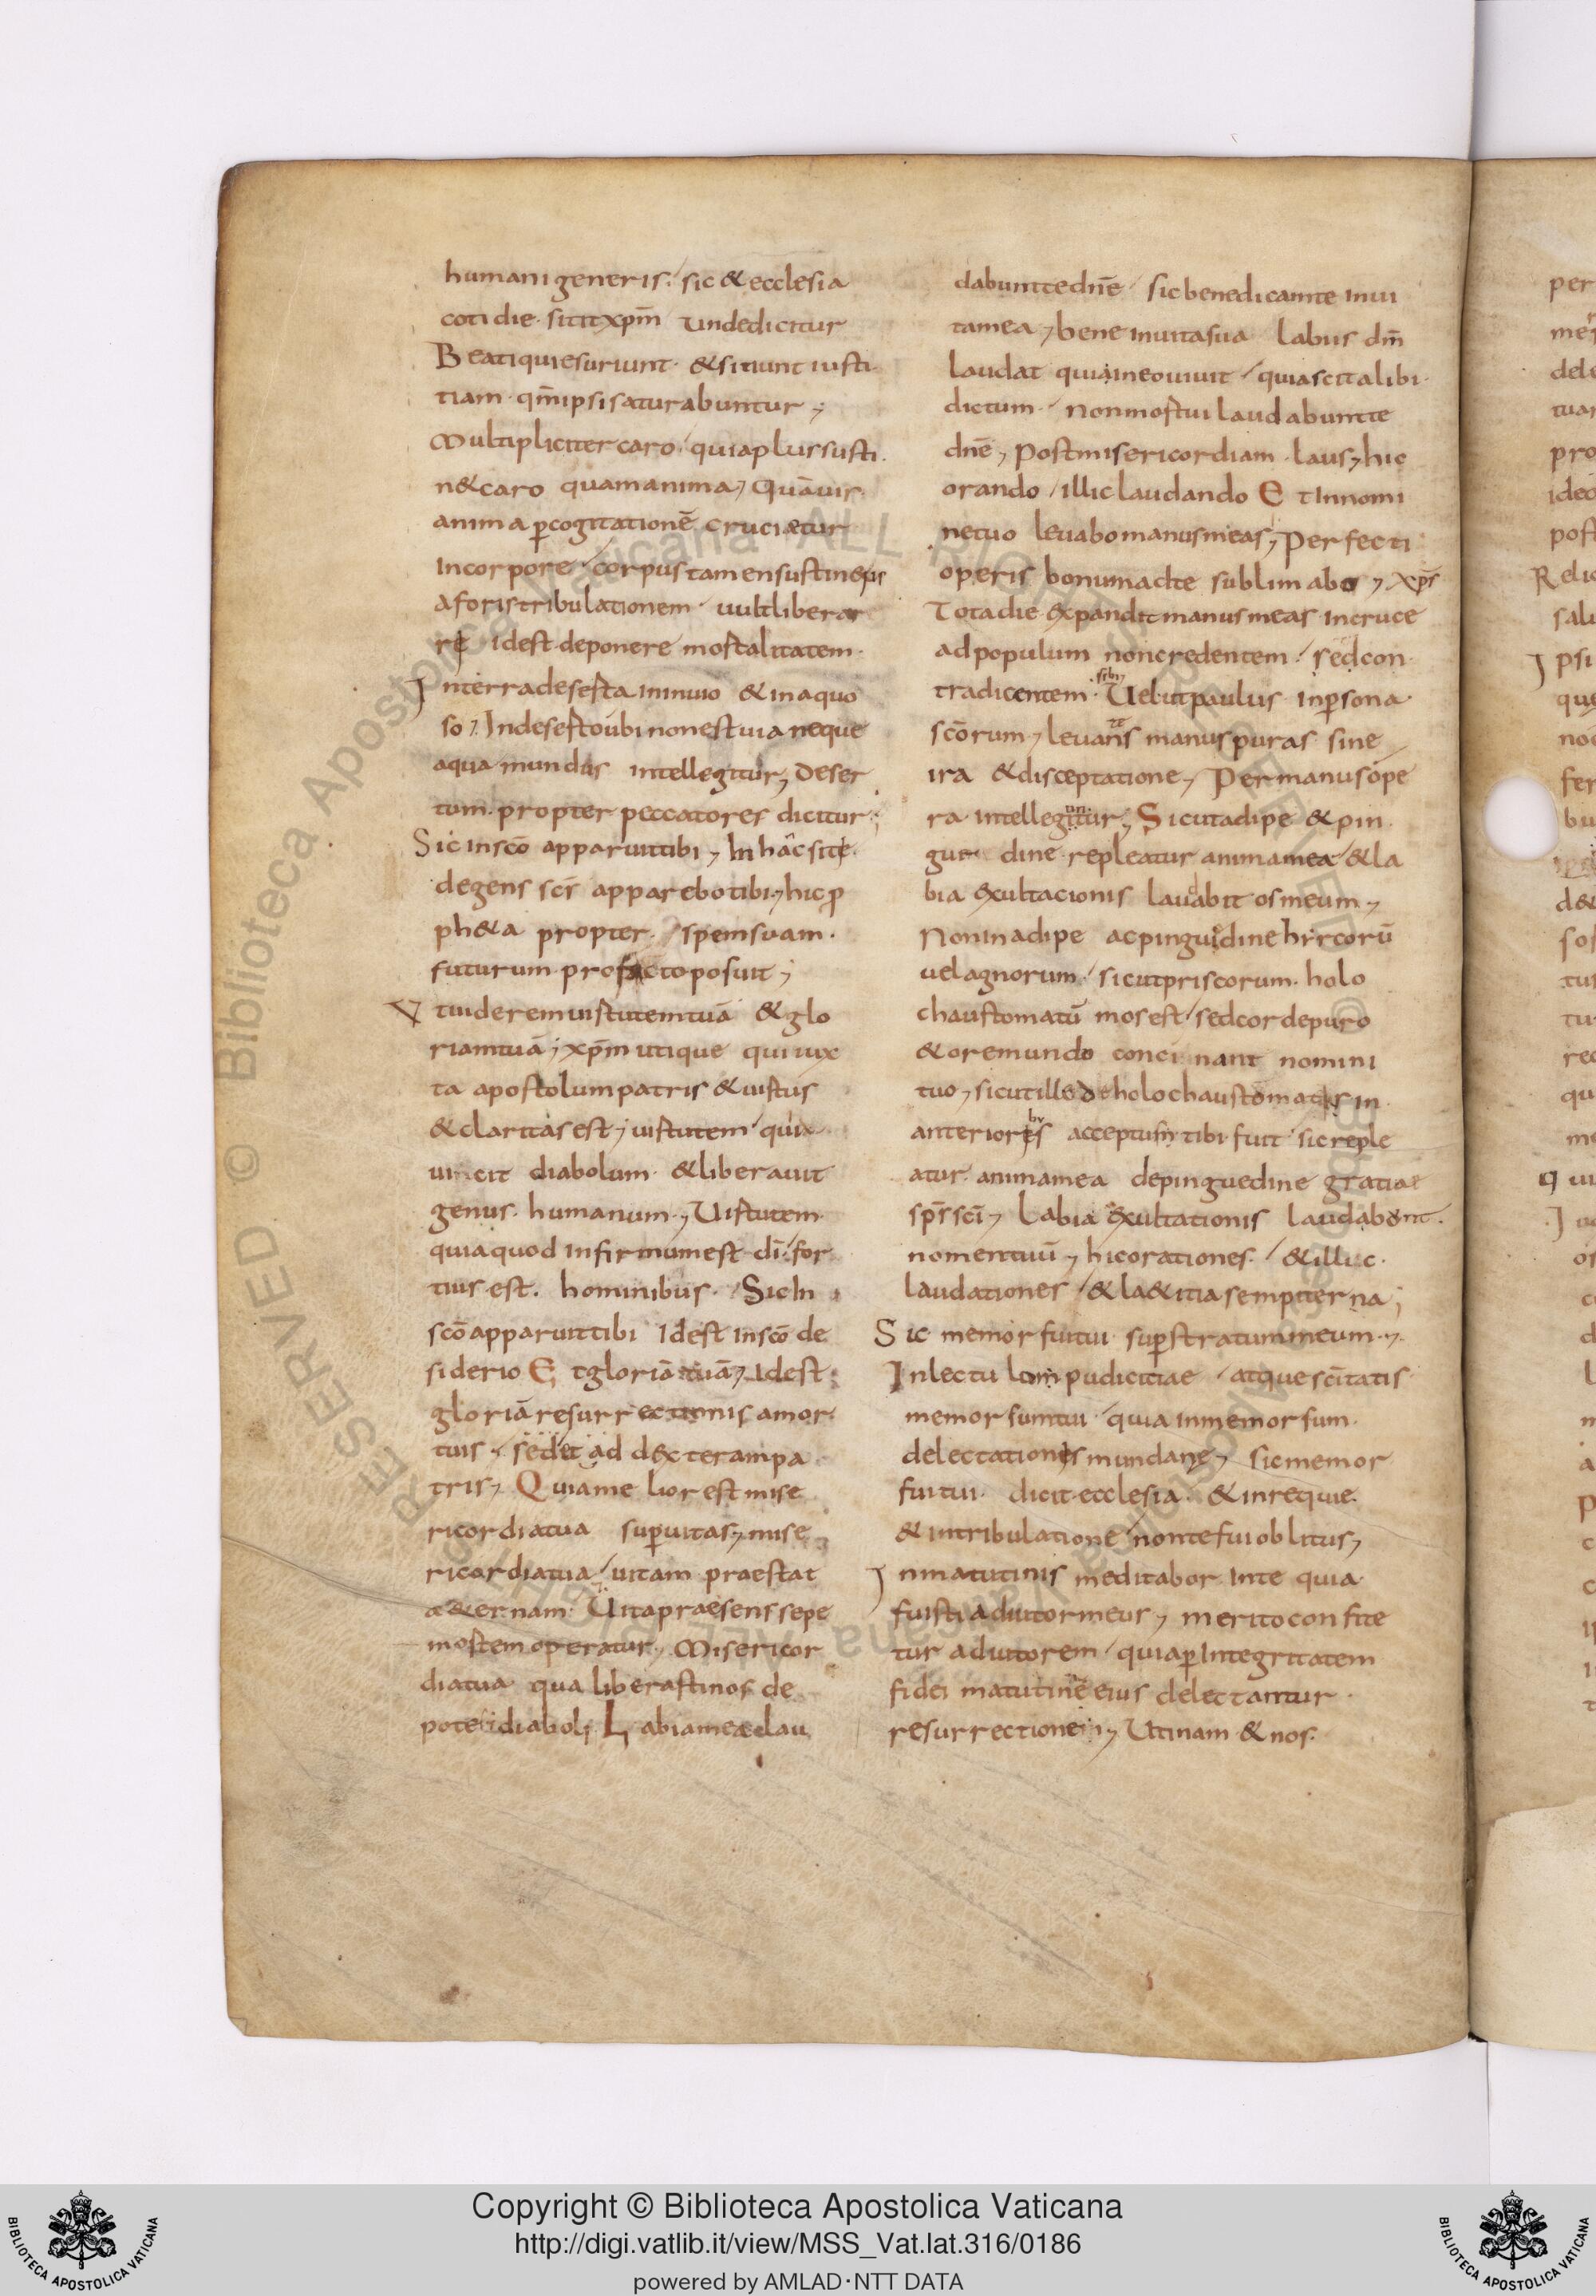 humani generis; sic & ecclesia
cotidie sitit xp̄m Unde dicitur
Beati qui esuriunt & sitiunt iusti
tiam qm̄ ipsi saturabuntur;
Multipliciter caro; quia plus susti
n& caro quam anima; Quāvis
anima p̄ cogitationē cruciætur
In corpore corpus tamen sustinens
a foris tribulationem vult libera
re idest deponere mortalitatem
In terra deserta in inuio & in aquo
so; In deserto ubi non est via neque
aqua mundus intellegitur; Deser
tum propter peccatores dicitur;
Sic in sc̄o apparui tibi; In hac siti
degens sc̄s apparebo tibi; hic p̄
ph&a propter spem suam
futurum pro facto posuit;
Ut uiderem uirtutem tuā & glo
riam tuā; xp̄m utique qui iux
ta apostolum patris & uirtus
& claritas est; uirtutem quia
uincit diabolum & liberauit
genus humanum; Uirtutem
quia quod infirmum est dī for
tius est hominibus Sic In
sc̄o apparui tibi Idest In sc̄o de
siderio Et gloriā tuā; Idest
gloriā resurrectionis a mor
tuis sedet ad dexteram pa
tris; Quia melior est mise
ricordia tua sup̄ uitas; mise
ricordia tua uitam praestat
æ&ernam Uita praesens sepe
mortem operatur; Misericor
dia tua qua liberasti nos de
potes diaboli Labia mea lau
dabunt te dn̄e sic benedicam te in ui
ta mea; bene in uita sua Labiis dm̄
laudat quia in eo uiuit quia scit alibi
dictum non mortui laudabunt te
dn̄e; Post misericordiam laus; hic
orando illic laudando Et In nomi
ne tuo leuabo manus meas; Perfecti
operis bonum ad te sublimabo; xp̄s
Tota die expandit manus meas in cruce
ad populum non credentem sed con
tradicentem sibi; Uelut paulus in p̄sona
sc̄orum; leuantes manus puras sine
ira & disceptatione; Per manus ope
ra intelleguntur; Sicut adipe & pin
guedine repleatur anima mea & la
bia exultacionis laudabit os meum;
Non in adipe ac pinguidine hircorū
uel agnorum sicut priscorum holo
chaustomatū mos est sed corde puro
& ore mundo concinant nomini
tuo; sicut ille de holochaustomatis in
anterioribus acceptum tibi fuit sic reple
atur anima mea de pinguedine gratiae
sp̄s sc̄i; Labia exultationis laudabunt
nomen tuum; hic orationes & illuc
laudationes & la&itia sempiterna;
Sic memor fui tui sup̄ stratum meum;
In lectu pudicitiae atque sc̄itatis
memor sum tui quia inmemor sum
delectationis mundane; sic memor
fui tui dicit ecclesia & in requie
& in tribulatione non te fui oblitus;
In matutinis meditabor In te quia
fuisti adiutor meus; merito confite
tur adiutorem quia p̄ Integritatem
fidei matutine eius delectantur
resurrectionem; Utinam & nos
Copyright © Biblioteca Apostolica Vaticana
http://digi.vatlib.it/view/MSS_Vat.lat.316/0186
powered by AMLAD·NTT DATA